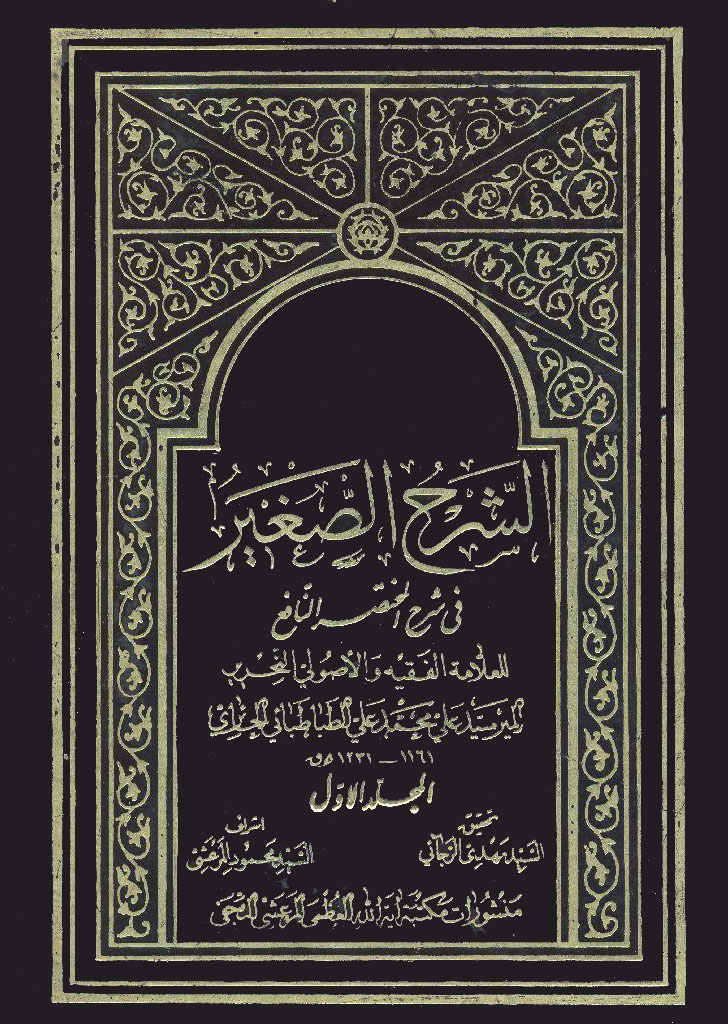 الشرح الصغير
في شرح المختصر النافع
للعلامة الفقيه والأصولي النحرير
المير سيد علي محمد علي الطباطبائي الحائري
١١٦١ – ١٢٣١ ه‍ ق
المجلد الأول
تحقيق
السيد مهدي الرجائي
اشراف
السيد محمود المرعشي
منشورات مكتبة آية الله العظمى المرعشي النجفي